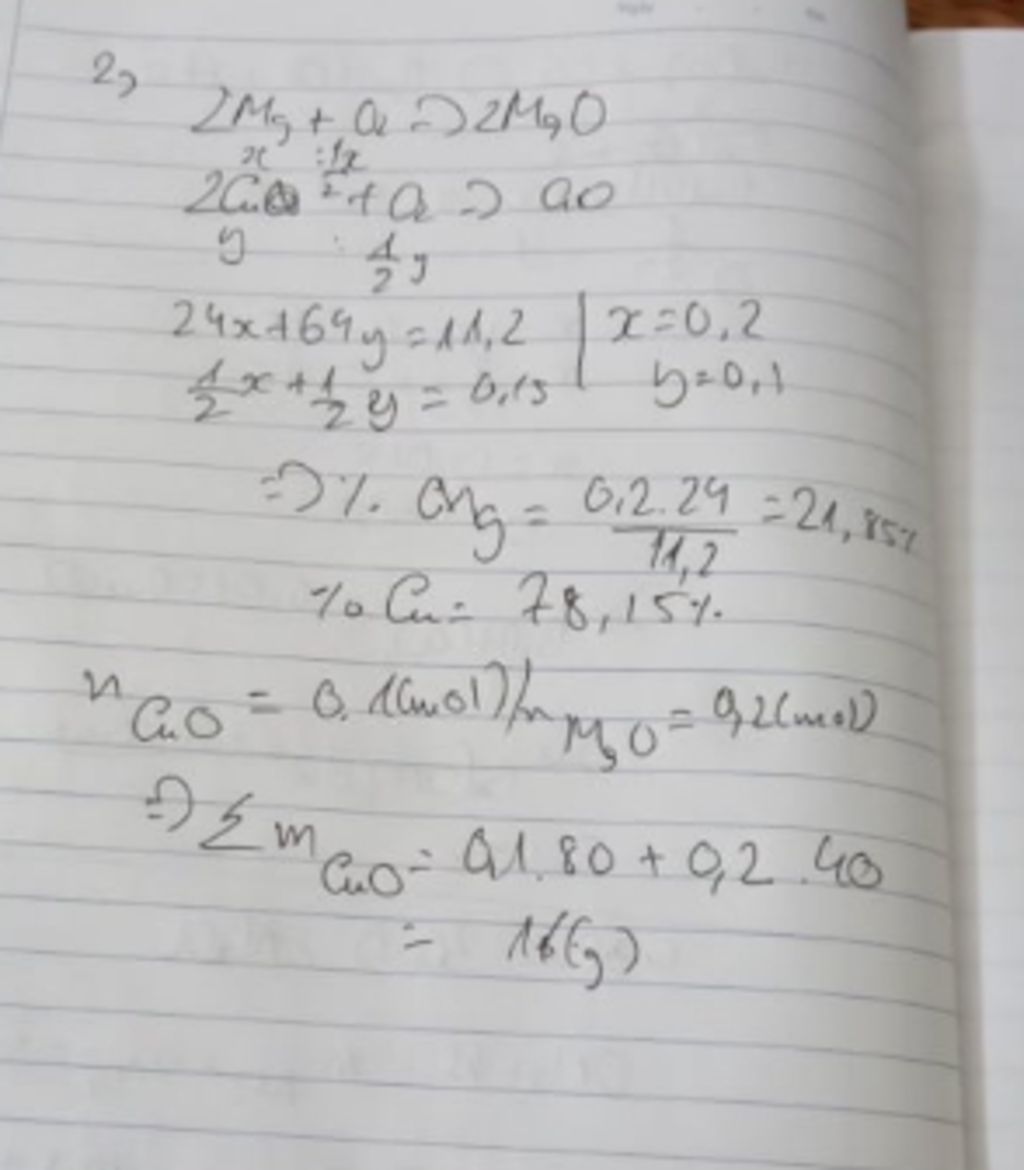 2,
2Mg + O2 => 2MgO
x : 1/2 x
2Cu + O2 => CuO
y : 1/2 y
24x+64y = 11,2 | x=0,2
1/2 x + 1/2 y = 0,15 | y=0,1
=> % Mg = 0,2.24/11,2 = 21,85%
% Cu = 78,15%
n CuO = 0,1(mol)/n MgO = 0,2(mol)
=> Σ m CuO = 0,1.80 + 0,2.40
= 16(g)